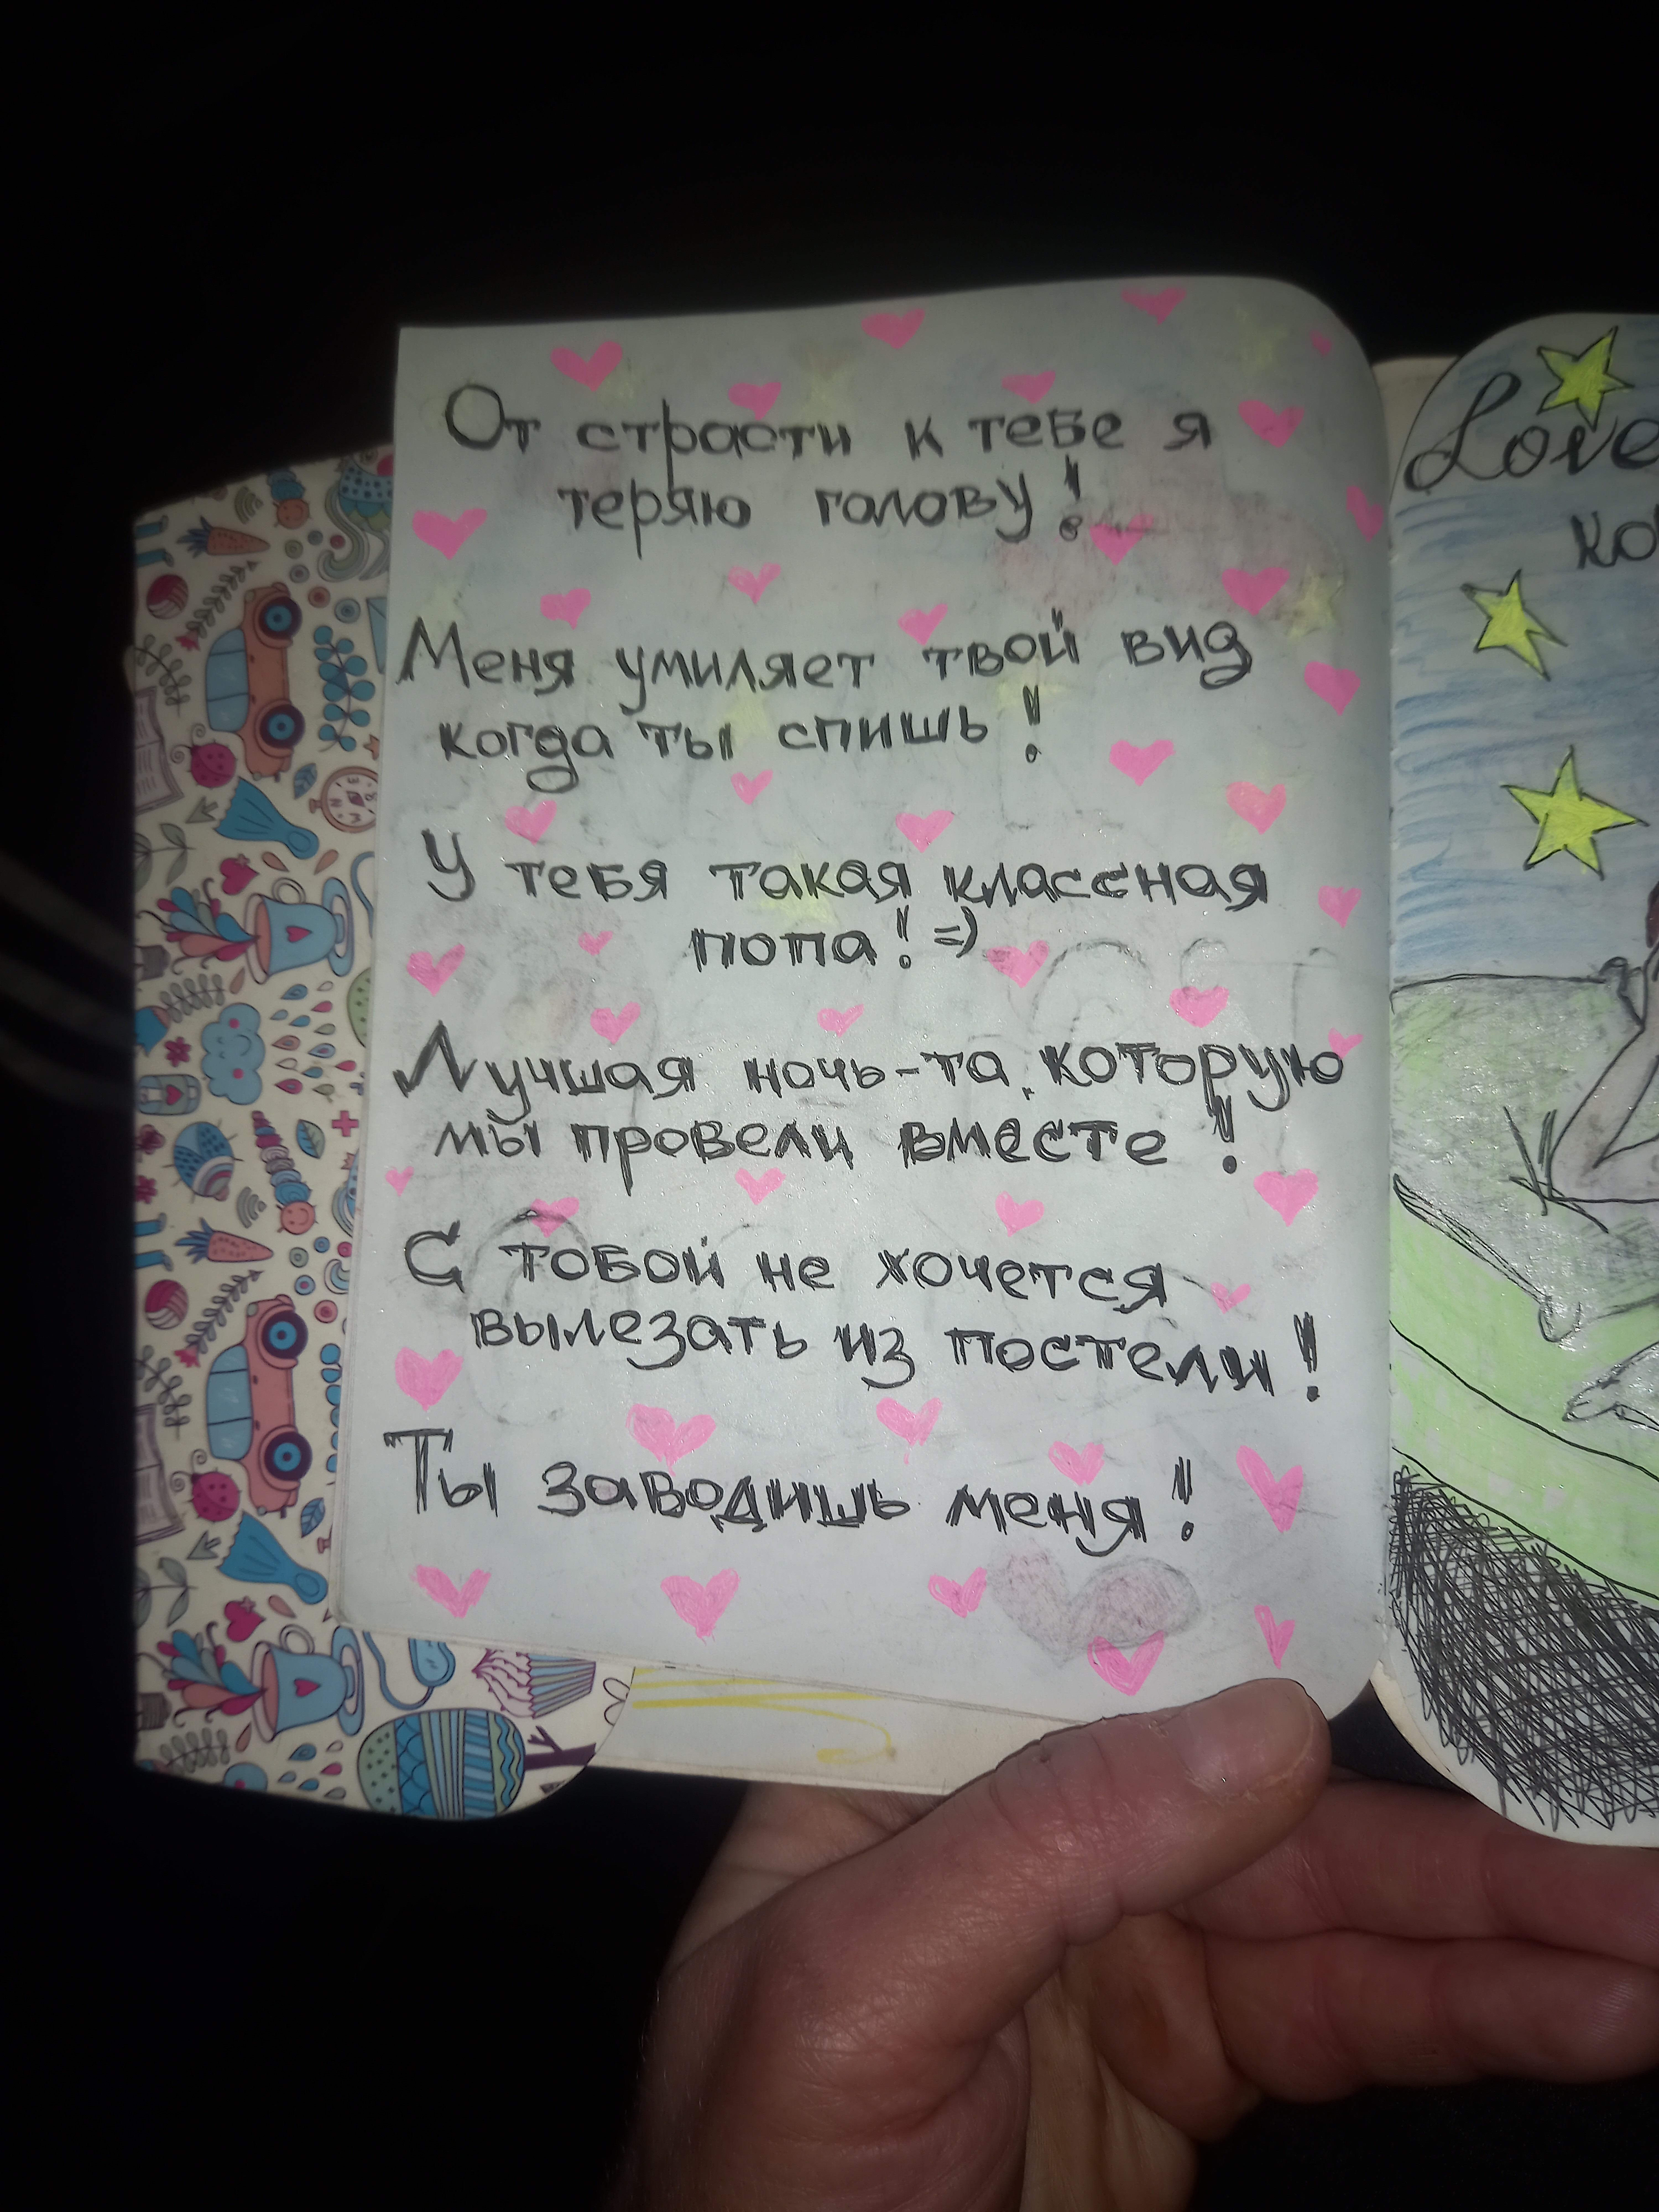 От страсти к тебе я
теряю голову!
Меня умиляет твой вид
когда ты спишь!
У тебя такая классная
попа! =)
Лучшая ночь-та, которую
мы провели вместе!
С тобой не хочется
вылезать из постели!
Ты заводишь меня!
Love